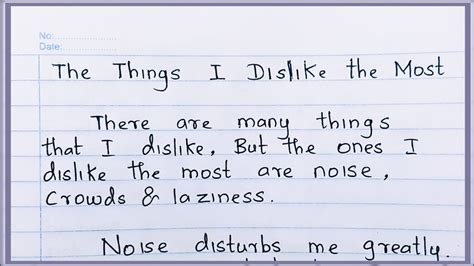 No:
Date:
The Things I Dislike the Most
There are many things
that I dislike, But the ones I
dislike the most are noise,
Crowds & laziness.
Noise disturbs me greatly.